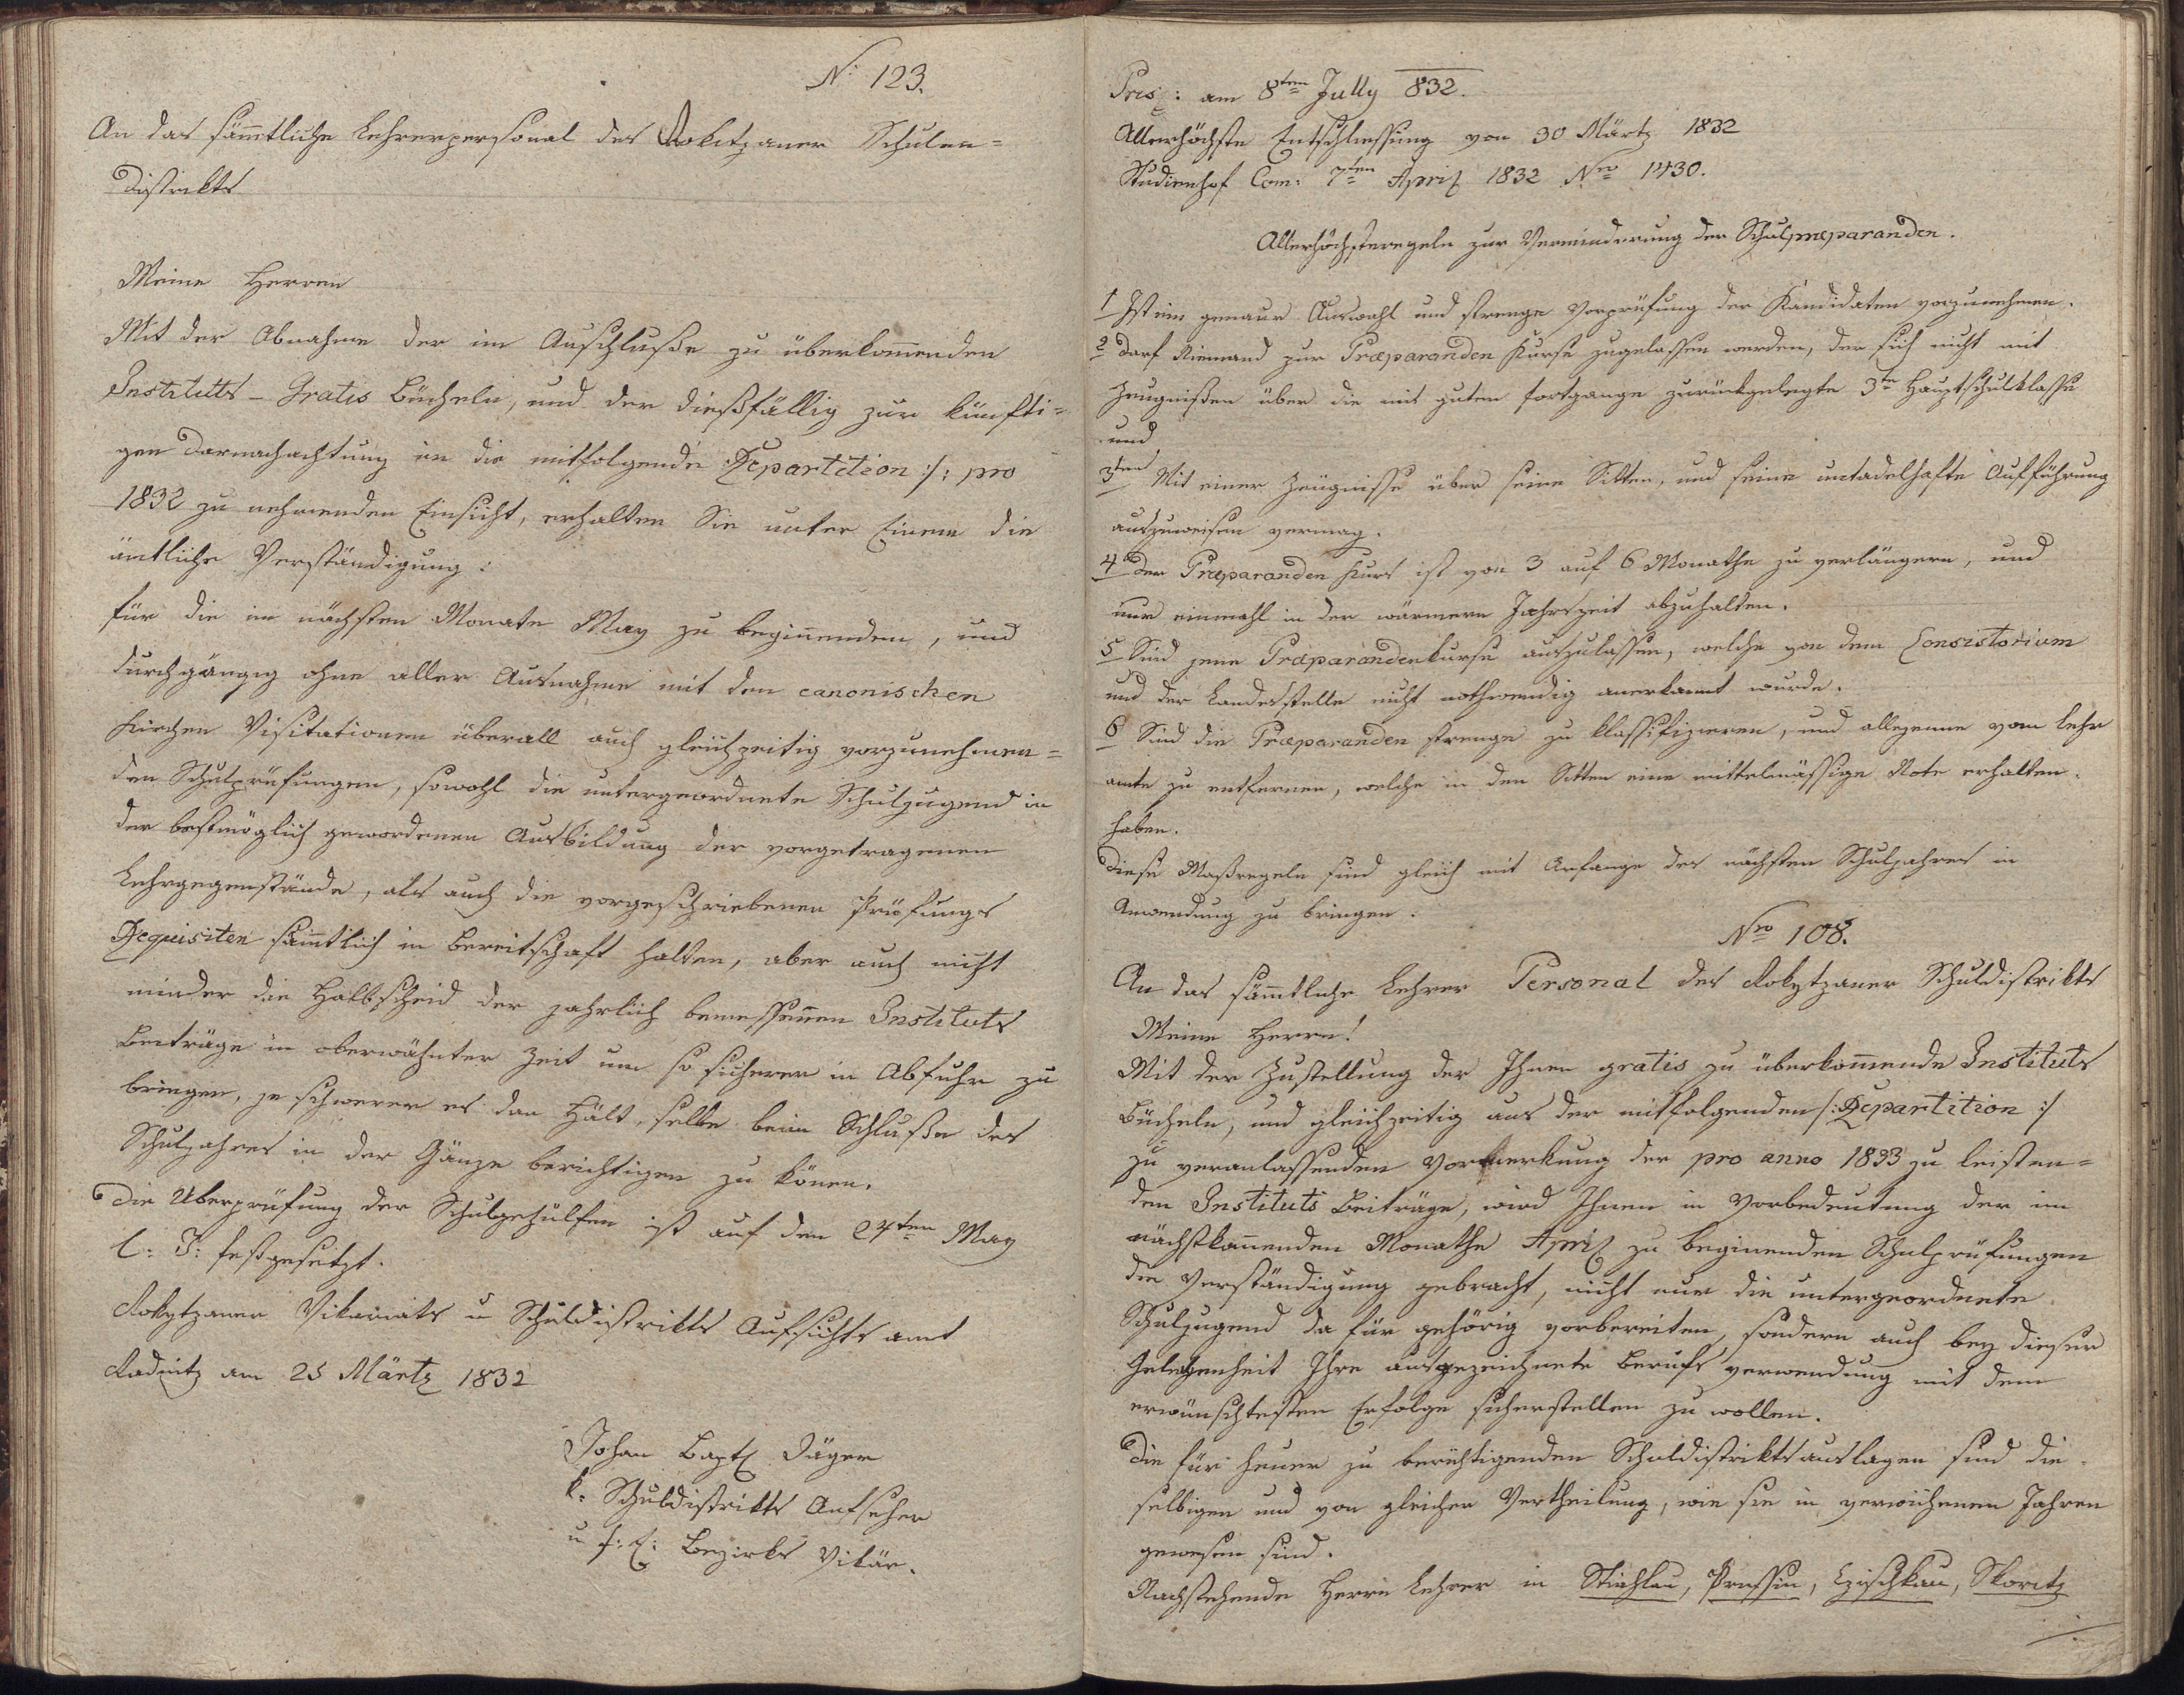 N: 123.
An das sämtliche Lehrerpersonal des Rokitzaner Schulen=
Distrikts
Meine Herren
Mit der Abnahme der im Anschluße zu überkommenden
Instituts - Gratis Bücheln, und der dießfällig zur künfti=
gen Darnachachtung in die mitfolgende Repartition :/: pro
1832 zu nehmenden Einsicht, erhalten Sie unter Einem die
ämtliche Verständigung:
für die im nächsten Monate May zu beginnenden, und
durchgängig ohne aller Ausnahme mit den canonischen
Kirchen Visitationen überall auch gleichzeitig vorzunehmen=
den Schulprüfungen, sowohl die untergeordnete Schuljugend in
der bestmöglich gewordenen Ausbildung der vorgetragenen
Lehrgegenstände, als auch die vorgeschriebenen Prüfungs
Requisiten sämtlich in Bereitschaft halten, aber auch nicht
minder die Halbscheid der jahrlich bemessenen Instituts
Beiträge in oberwähnter Zeit um so sicherer in Abfuhr zu
bringen, je schwerer es dan hält, selbe beim Schluße des
Schuljahres in der Gänze berichtigen zu könen.
Die Uberprüfung der Schulgehülfen ist auf den 24ten May
l: J: festgesetzt.
Rokytzaner Vikariats u Schuldistrikts Aufsichts amt
Radnitz am 25 Märtz 1832
Johan Bapt Jäger
k. Schuldistrikts Aufseher
u f: E: Bezirks Vikär.
Pres: am 8ten July 832.
Allerhöchste Entschliessung von 30 Märtz 1832
Studienhof Com: 7ten April 1832 Nro 1430.
Allerhöchsteregeln zur Verminderung der Schulpræparanden.
1 Ist eine genaue Auswahl und strenge Vorprüfung der Kandidaten vorzunehmen.
2 Darf Niemand zur Præparanden Kurse zugelassen werden, der sich nicht mit
Zeugnißen über die mit guten fortgange zurückgelegte 3te Hauptschulklasse
und
3tens Mit einer Zeugnisse über seine Sitten, und seine untadelhafte Aufführung
auszuweisen vermag.
4 Der Præparanden Kurs ist von 3 auf 6 Monathe zu verlängern, und
nur einmahl in der wärmern Jahrszeit abzuhalten.
5 Sind jene Præparandenkurse auszulassen, welche von dem Consistorium
und der Landesstelle nicht nothwendig anerkannt wurde.
6 Sind die Præparanden strenge zu klassifizieren, und allejenne vom Lehr
amte zu entfernen, welche in den Sitten eine mittelmässige Note erhalten
haben.
Diese Maßregeln sind gleich mit Anfange des nächsten Schuljahres in
Anwendung zu bringen.
Nro 108.
An das sämtliche Lehrer Personal des Rokytzaner Schuldistrikts
Meine Herrn!
Mit der Zustellung der Ihnen gratis zu überkommende Instituts
Bücheln, und gleichzeitig aus der mitfolgenden /: Repartition :/
zu veranlassenden Vormerkung der pro anno 1833 zu leisten=
den Instituts Beiträge, wird Ihnen in Vorbedeutung der im
nächstkommenden Monathe April zu beginenden Schulprüfungen
die Verständigung gebracht, nicht nur die untergeordnete
Schuljugend da für gehörig vorbereiten, sondern auch bey dieser
Gelegenheit Ihre ausgezeichnete Berufs verwendung mit dem
erwünschtesten Erfolge sicherstellen zu wollen.
Die für heuer zu berichtigenden Schuldistriktsauslagen sind die
selbigen und von gleicher Vertheilung, wie sie in verwichenen Jahren
gewesen sind.
Nachstehende Herrn Lehrer in Stiahlau, Prassin, Ejschkau, Skoritz